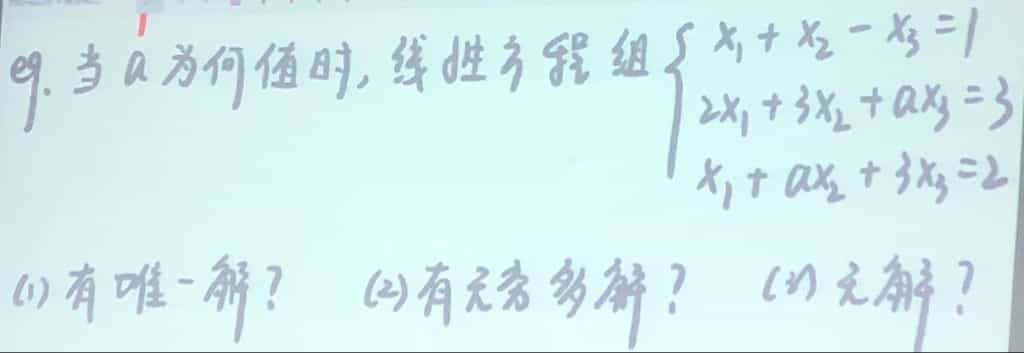 eg. 当 a 为何值时, 线性方程组 { x₁ + x₂ - x₃ = 1
2x₁ + 3x₂ + ax₃ = 3
x₁ + ax₂ + 3x₃ = 2
(1) 有唯一解? (2) 有无穷多解? (3) 无解?